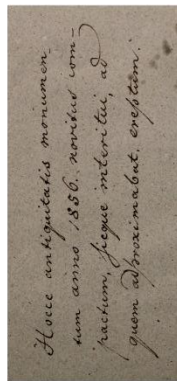 Hocce antiquitatis monumen
tum anno 1856. noviter com-
pactum, sicque interitui, ad
quem adproximabat, ereptum.